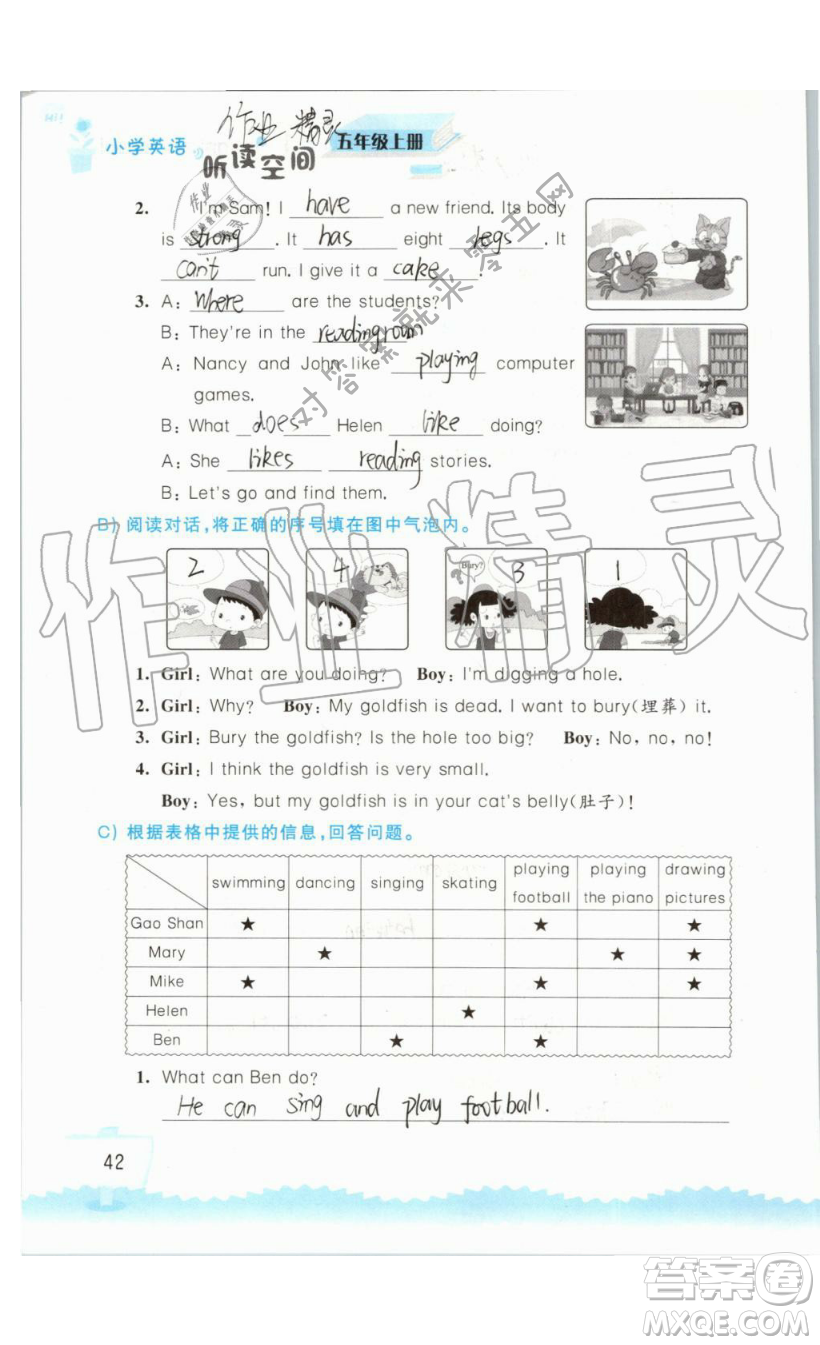 Hi!
作业精灵
小学英语
听读空间
五年级上册
2. I'm Sam! I have a new friend. Its body
is strong. It has eight legs. It
can't run. I give it a cake!
3. A: Where are the students?
B: They're in the reading room
A: Nancy and John like playing computer
games.
B: What does Helen like doing?
A: She likes reading stories.
B: Let's go and find them.
对答案就来零五网
B) 阅读对话，将正确的序号填在图中气泡内。
2 4 Bury? 3 1
作业精灵
1. Girl: What are you doing? Boy: I'm digging a hole.
2. Girl: Why? Boy: My goldfish is dead. I want to bury(埋葬) it.
3. Girl: Bury the goldfish? Is the hole too big? Boy: No, no, no!
4. Girl: I think the goldfish is very small.
Boy: Yes, but my goldfish is in your cat's belly(肚子)!
C) 根据表格中提供的信息，回答问题。
swimming dancing singing skating playing football playing the piano drawing pictures
Gao Shan ★ ★ ★
Mary ★ ★ ★
Mike ★ ★ ★
Helen ★
Ben ★ ★
1. What can Ben do?
He can sing and play football.
42
答案圈
MXQE.COM